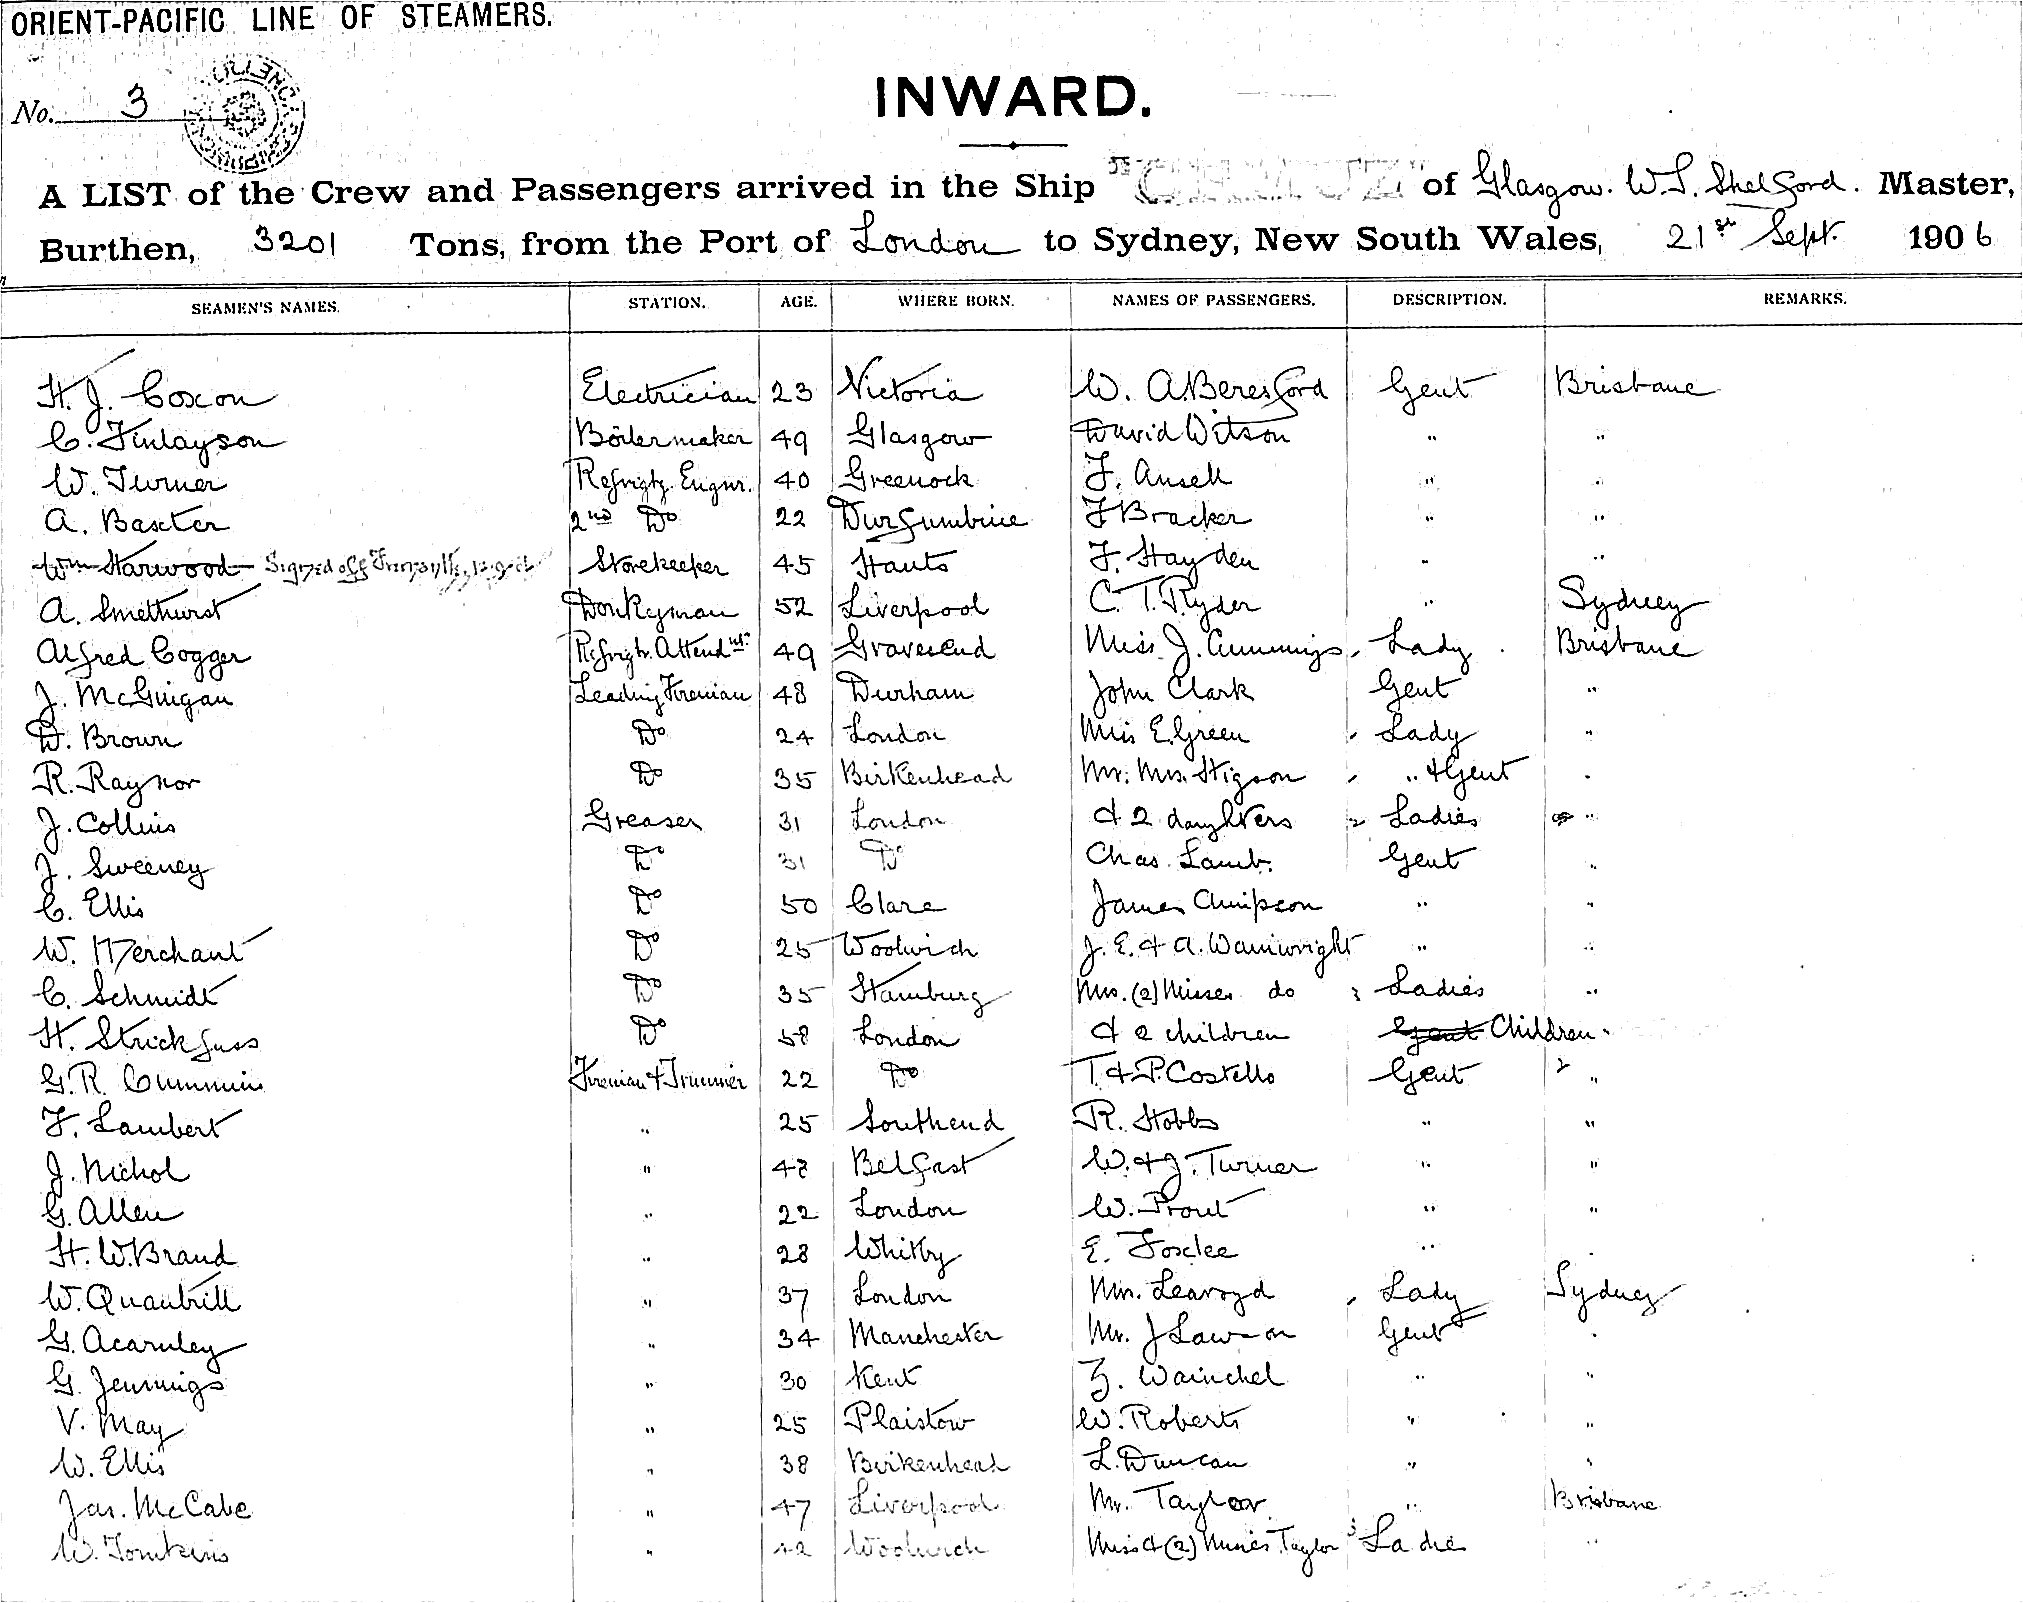 ORIENT-PACIFIC LINE OF STEAMERS.
No. 3
INWARD.
A LIST of the Crew and Passengers arrived in the Ship of Glasgow. W. S. Shelford. Master,
Burthen, 3201 Tons, from the Port of London to Sydney, New South Wales, 21st Sept. 1906
SEAMEN'S NAMES. STATION. AGE. WHERE BORN. NAMES OF PASSENGERS. DESCRIPTION. REMARKS.
H. J. Coxon Electrician 23 Victoria W. A. Beresford Gent Brisbane
C. Finlayson Boilermaker 49 Glasgow David Witson " "
W. Turner Refrigtg. Engnr. 40 Greenock F. Ansell " "
A. Baxter 2nd Do 22 F Bracker " "
Wm Harwood Signed off Storekeeper 45 Hants F. Hayden " "
A. Smethurst Donkeyman 52 Liverpool C. T. Ryder " Sydney
Alfred Cogger Refrigtr. Attendnt. 49 Gravesend Miss. J. Cummings Lady Brisbane
J. McGuigan Leading Fireman 48 Durham John Clark Gent "
D. Brown Do 24 London Miss E. Green Lady "
R. Raynor Do 35 Birkenhead Mr. Mrs. Higson " & Gent "
J. Collins Greaser 31 London & 2 daughters 2 Ladies "
J. Sweeney Do 31 Do Chas. Lamb. Gent "
C. Ellis Do 50 Clare James " "
W. Merchant Do 25 Woolwich J. E. & A. Wainwright " "
C. Schmidt Do 35 Hamburg Mrs. (2) Misses do 3 Ladies "
H. Strickfuss Do 58 London & 2 children Gent Children "
G. R. Cummins Fireman & Trimmer 22 Do T. & P. Costello Gent 2 "
F. Lambert " 25 Southend R. Hobbs " "
J. Nichol " 48 Belfast W. & J. Turner " "
G. Allen " 22 London W. Prout " "
H. W. Brand " 28 Whitby E. Foxlee " "
W. Quantrill " 37 London Mrs. Learoyd Lady Sydney
G. Acarnley " 34 Manchester Mr. J Lawson Gent "
G. Jennings " 30 Kent Z. Wainchel " "
V. May " 25 Plaistow W. Roberts " "
W. Ellis " 38 Birkenhead L. Duncan " "
Jas. McCabe " 47 Liverpool Mr. Taylor " Brisbane
W. Tomkins " 42 Woolwich Miss & (2) Misses Taylor 3 Ladies "